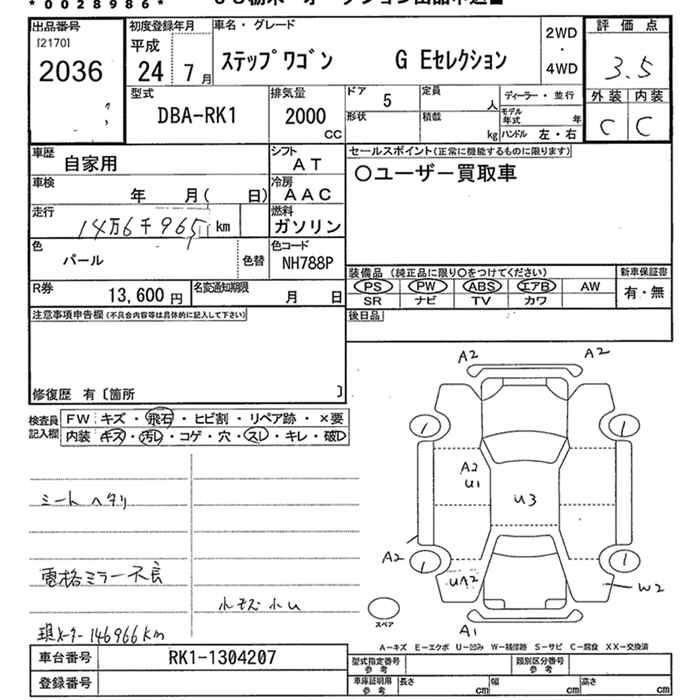 * 0 0 2 8 9 8 6 *
出品番号
[2170]
2036
初度登録年月
平成
24 7月
車名・グレード
ステップワゴン G Eセレクション
2WD
・
4WD
評価点
3.5
外装 内装
C C
型式
DBA-RK1
排気量
2000
CC
ドア 5
形状
定員
人
積載
kg
ディーラー・並行
モデル
年式 年
ハンドル 左・右
車歴
自家用
シフト
AT
車検
年 月( 日)
冷房
AAC
走行
14万6千965 km
燃料
ガソリン
色
パール
色替
色コード
NH788P
R券
13,600 円
名変通知期限
月 日
セールスポイント(正常に機能するものに限ります)
○ユーザー買取車
装備品 (純正品に限り○をつけてください)
PS PW ABS エアB AW
SR ナビ TV カワ
新車保証書
有・無
後日品
注意事項申告欄(不具合内容等は具体的に記入して下さい)
修復歴 有〔箇所 〕
検査員
記入欄
FW: キズ・飛石・ヒビ割・リペア跡・×要
内装: キズ・汚レ・コゲ・穴・スレ・キレ・破レ
シートヘタリ
電格ミラー不良
小キズ小U
現メーター146966km
A2
A2
A2
U1
U3
A2
UA2
W2
A1
スペア
A-キズ E-エクボ U-凹み W-補修跡 S-サビ C-腐食 XX-交換済
車台番号
RK1-1304207
登録番号
型式指定番号
参考
類別区分番号
参考
車庫証明用
参考
長さ cm
幅 cm
高さ cm